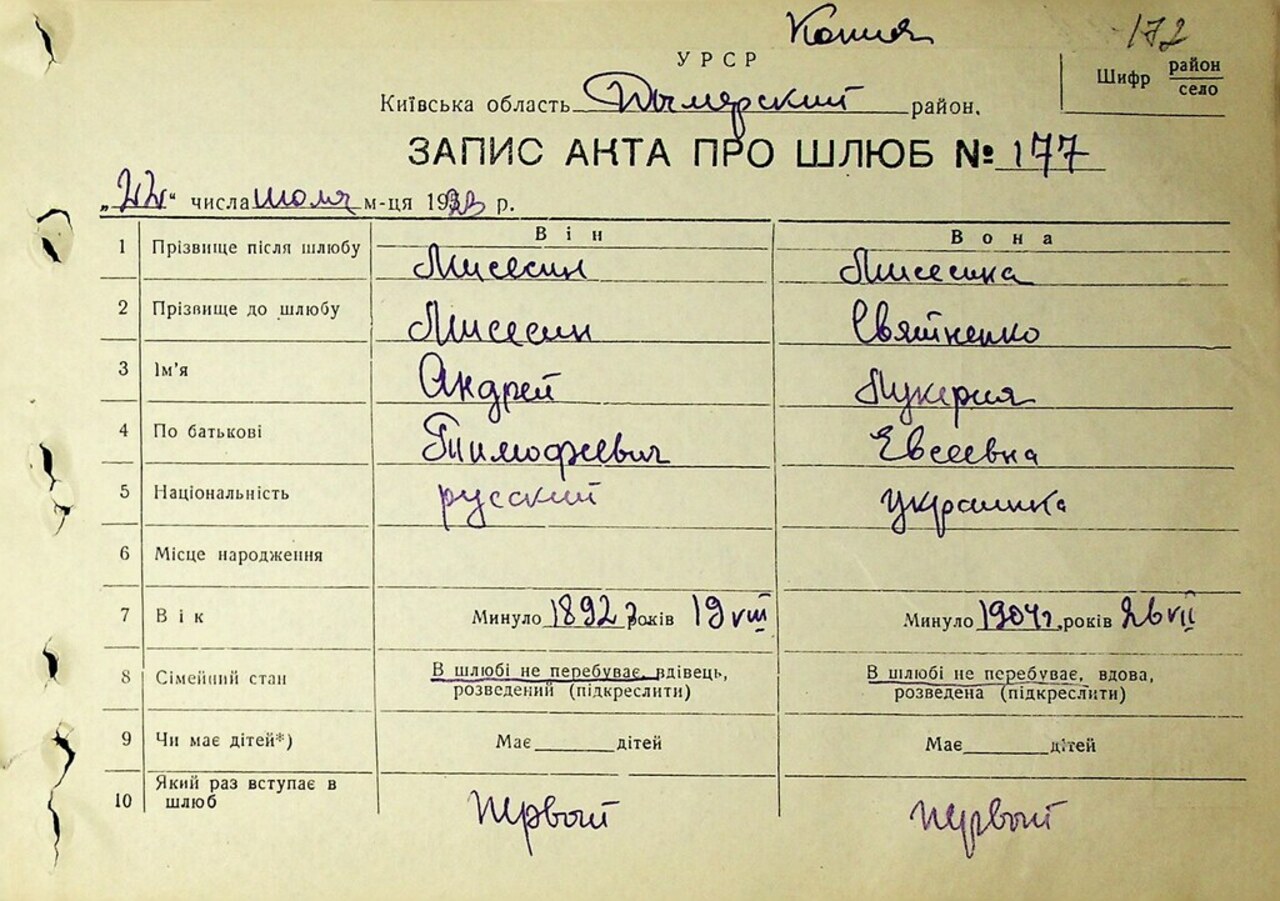 Копия
172
УРСР
Шифр район село
Київська область Дымерский район.
ЗАПИС АКТА ПРО ШЛЮБ № 177
„22“ числа июля м-ця 19 р.
Він Вона
1 Прізвище після шлюбу Лисесин Лисесина
2 Прізвище до шлюбу Лисесин Святненко
3 Ім'я Андрей Лукерия
4 По батькові Тимофеевич Евсеевна
5 Національність русский украинка
6 Місце народження
7 Вік Минуло 1892 г років 19 VIII Минуло 1904 г. років 26 VII
8 Сімейний стан В шлюбі не перебуває, вдівець, В шлюбі не перебуває, вдова,
розведений (підкреслити) розведена (підкреслити)
9 Чи має дітей*) Має дітей Має дітей
10 Який раз вступає в шлюб первый первый